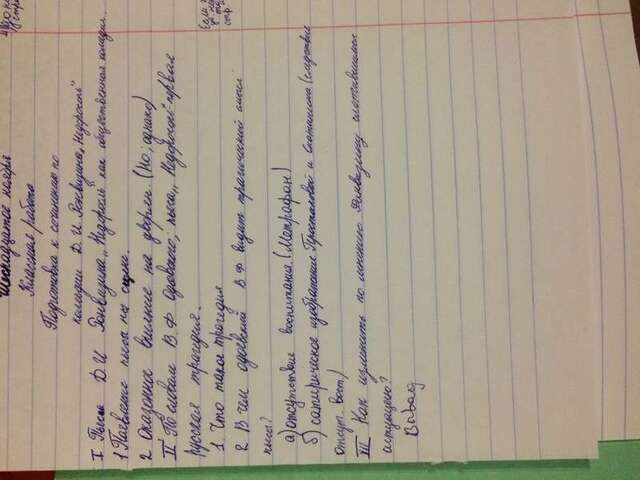 Шеснадцатое ноября
Классная работа
Подготовка к сочинению по
комедии Д.И. Фонвизина „Недоросль"
I Пьеса Д.И Фонвизина „Недоросль" как общественная комедия.
1 Появление пьесы на сцене.
2 Оказанное влияние на дворян. (Но, однако)
II По словам В.Ф Одоевского, пьеса „Недоросль" - первая
русская трагедия.
1 Что такое трагедия
2 В чем одоевский В.Ф видит трагический смысл
пьесы?
а) отсутствие воспитания. (Метрафан)
б) сатирическое изображение Простаковой и Скотинина (следствие
отсут. восп)
III Как изменить по мнению Фонвизину сложившуюся
ситуацию?
Вывод